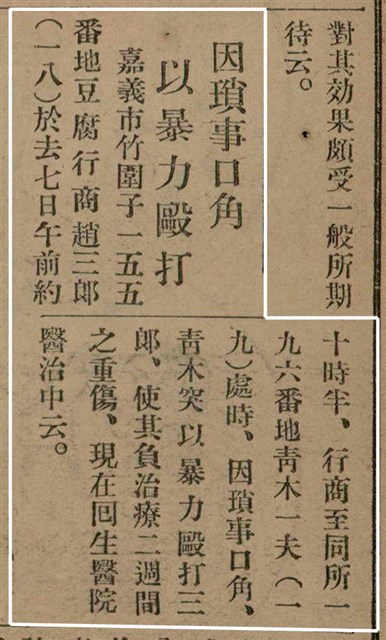 對其効果頗受一般所期
待云。
因瑣事口角
以暴力毆打
嘉義市竹圍子一五五
番地豆腐行商趙三郎
（一八）於去七日午前約
十時半、行商至同所一
九六番地靑木一夫（一
九）處時、因瑣事口角、
靑木突以暴力毆打三
郎、使其負治療二週間
之重傷、現在囘生醫院
醫治中云。